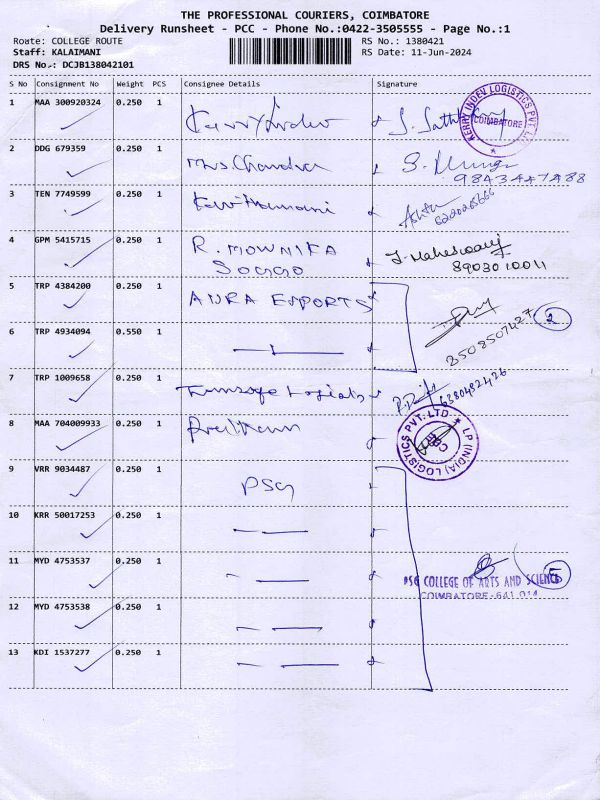 THE PROFESSIONAL COURIERS, COIMBATORE
Delivery Runsheet - PCC - Phone No.:0422-3505555 - Page No.:1
Route: COLLEGE ROUTE
RS No.: 1380421
Staff: KALAIMANI
RS Date: 11-Jun-2024
DRS No.: DCJB138042101
S No Consignment No Weight PCS Consignee Details Signature
1 MAA 300920324 0.250 1
KERRY INDEV LOGISTICS PVT. L
COIMBATORE
2 DDG 679359 0.250 1 Mrs. Chandra
9843447488
3 TEN 7749599 0.250 1
4 GPM 5415715 0.250 1 R. MOWNIKA
8903010011
5 TRP 4384200 0.250 1 AURA EXPORTS
2
6 TRP 4934094 0.550 1
8508507427
7 TRP 1009658 0.250 1
6380482426
8 MAA 704009933 0.250 1
LP (INDIA) LOGISTICS PVT. LTD.
CBE
9 VRR 9034487 0.250 1 PSG
10 KRR 50017253 0.250 1
11 MYD 4753537 0.250 1
PSG COLLEGE OF ARTS AND SCIENCE
5
COIMBATORE-641 014
12 MYD 4753538 0.250 1
13 KDI 1537277 0.250 1